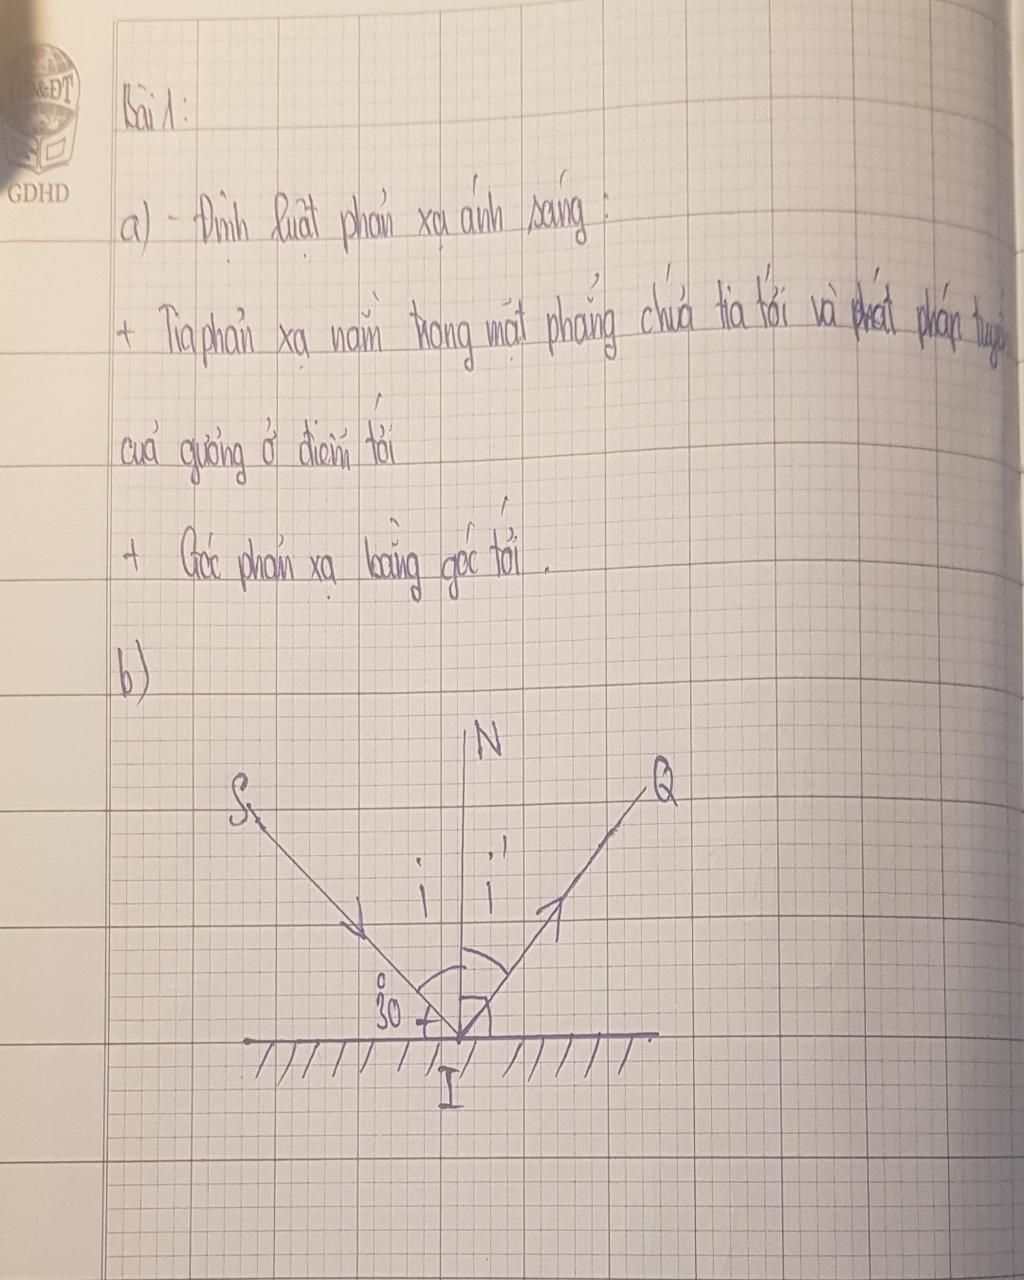 &ĐT
GDHD
Bài 1:
a) - Định luật phản xạ ánh sáng:
+ Tia phản xạ nằm trong mặt phẳng chứa tia tới và phát pháp tuyến
của gương ở điểm tới
+ Góc phản xạ bằng góc tới.
b)
N
S
Q
i i'
30°
I